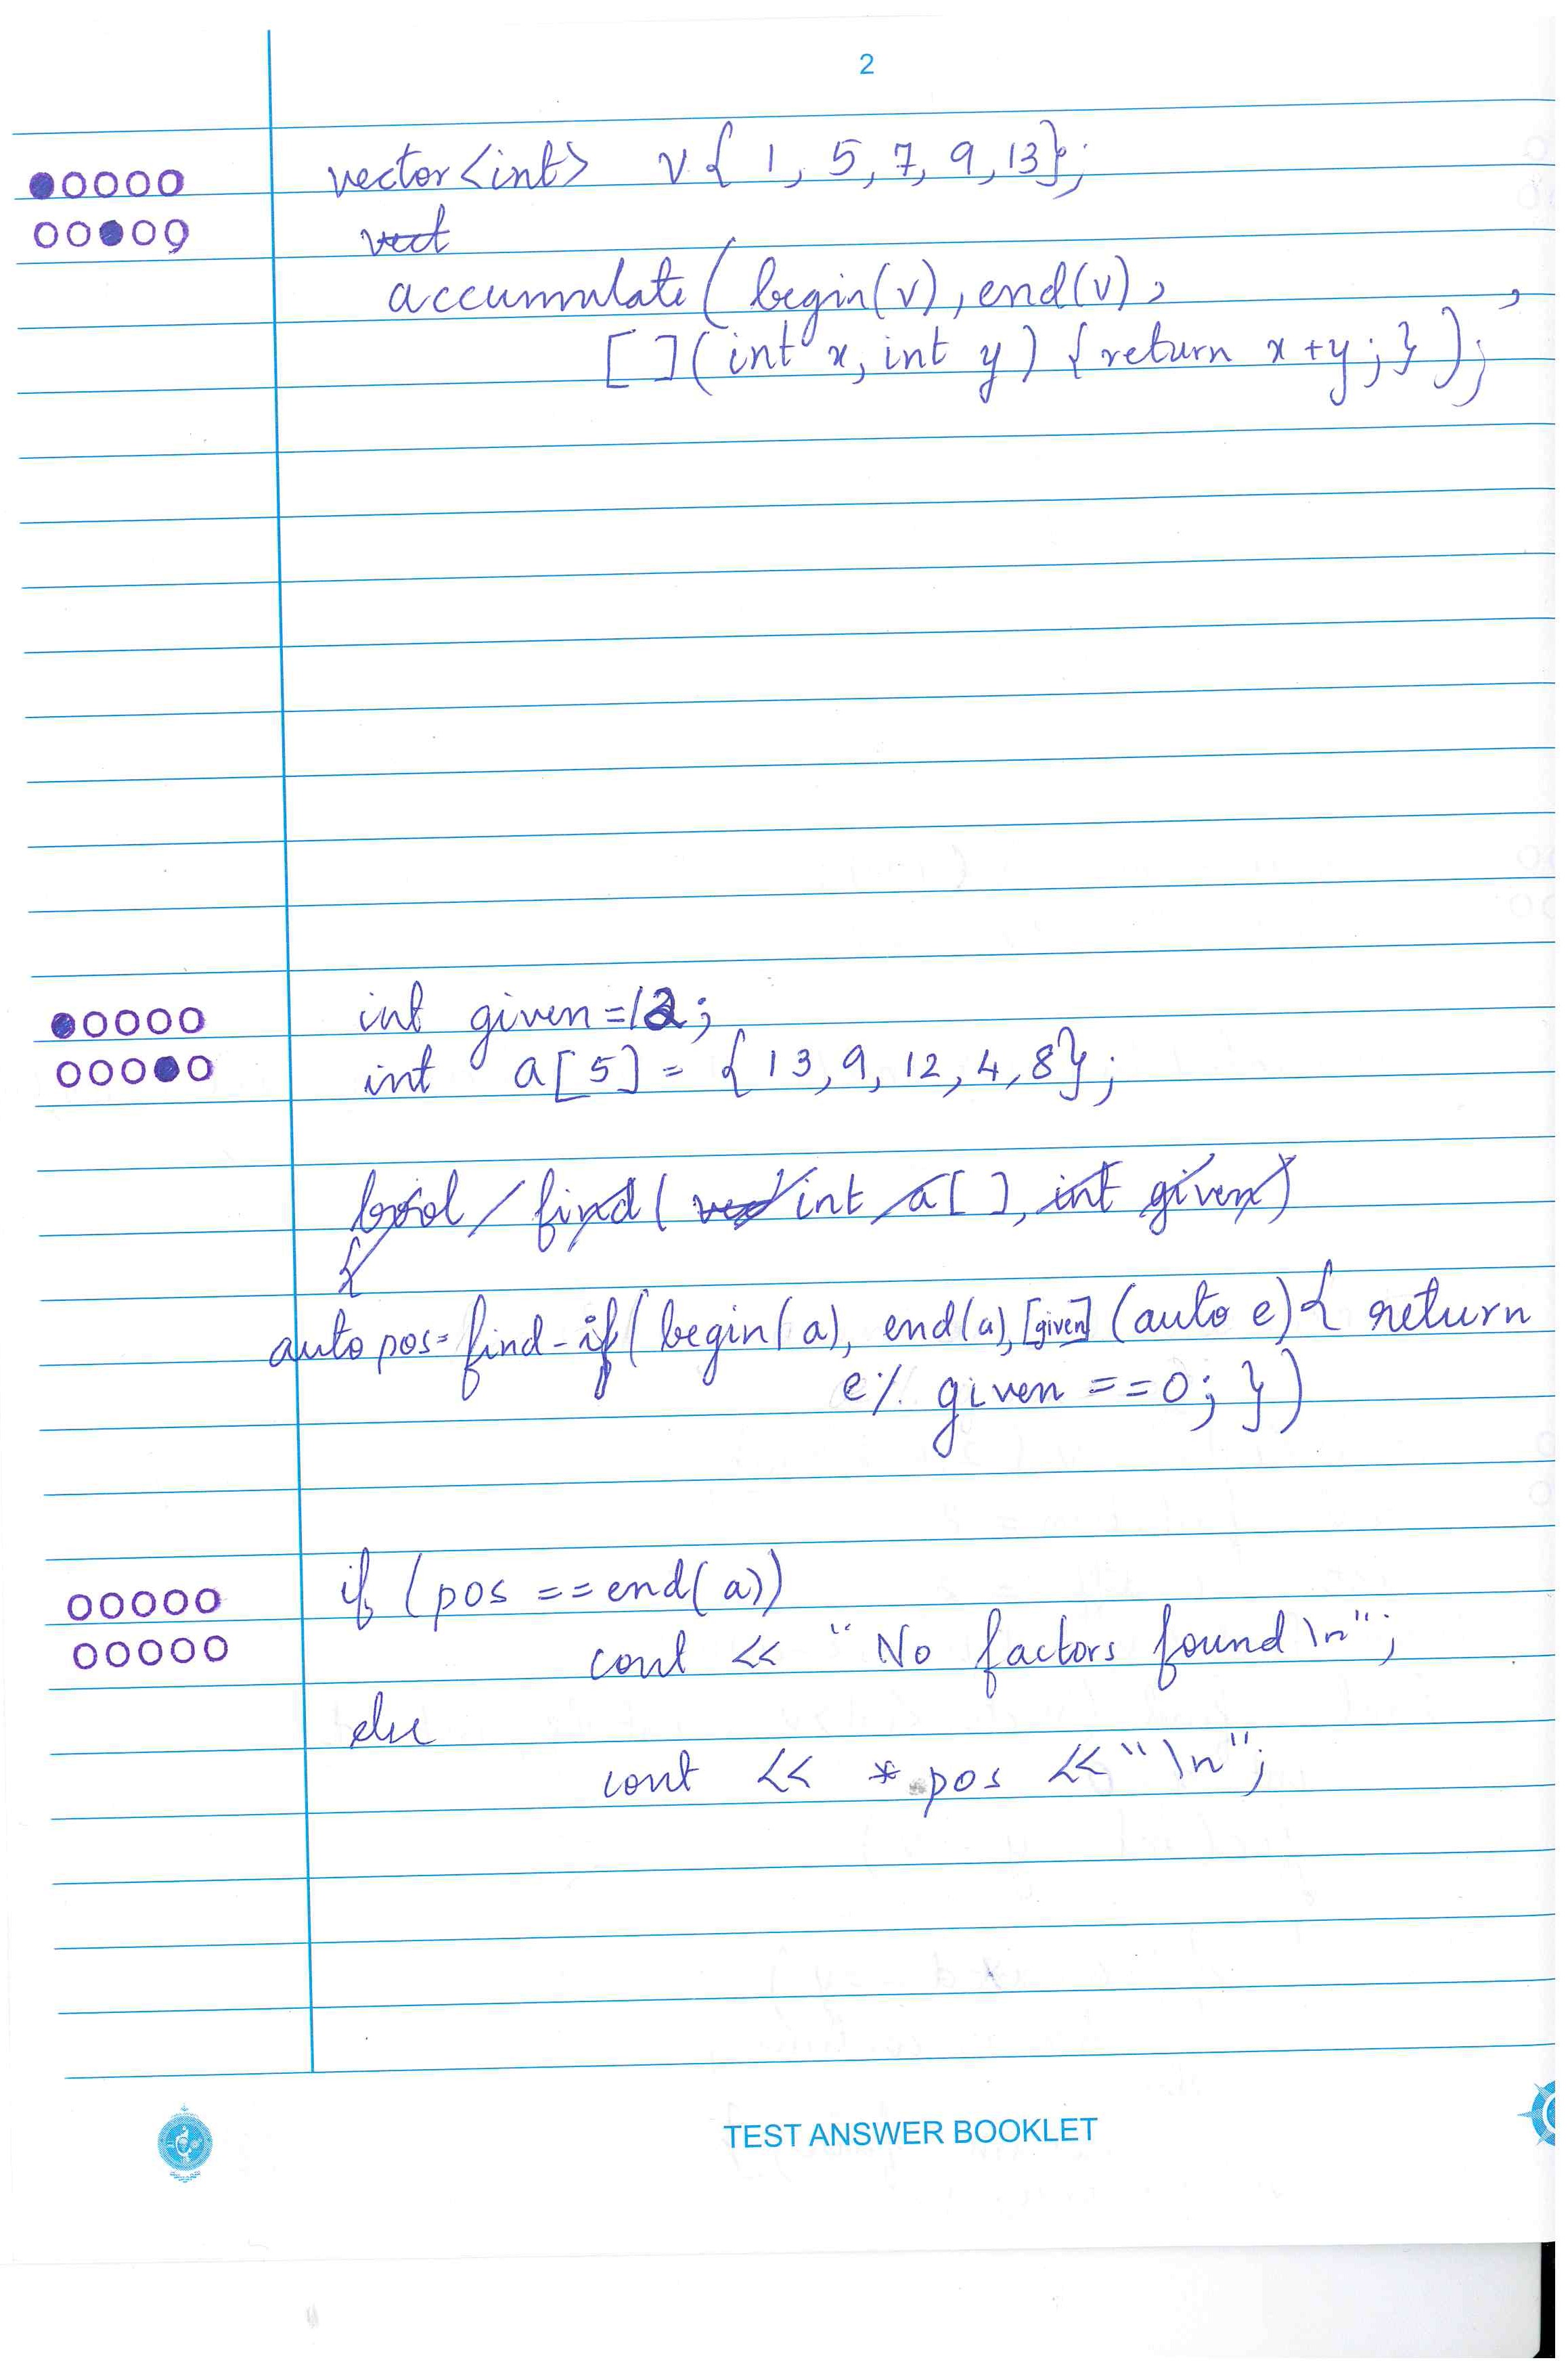 2
vector<int> v{ 1, 5, 7, 9, 13};
vect
accumulate( begin(v), end(v),
[ ](int x, int y) { return x+y; } );
,
int given=12;
int a[5] = { 13, 9, 12, 4, 8};
bool find( int a[ ], int given)
{
auto pos=find-if(begin(a), end(a), [given] (auto e){ return
e% given ==0; })
if (pos ==end(a))
cout << "No factors found \n";
else
cout << * pos <<"\n";
TEST ANSWER BOOKLET